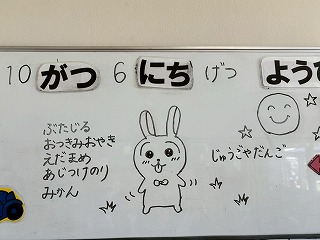 10 がつ 6 にち げつ ようび
ぶたじる
おつきみおやき
えだまめ
あじつけのり
みかん
じゅうごやだんご